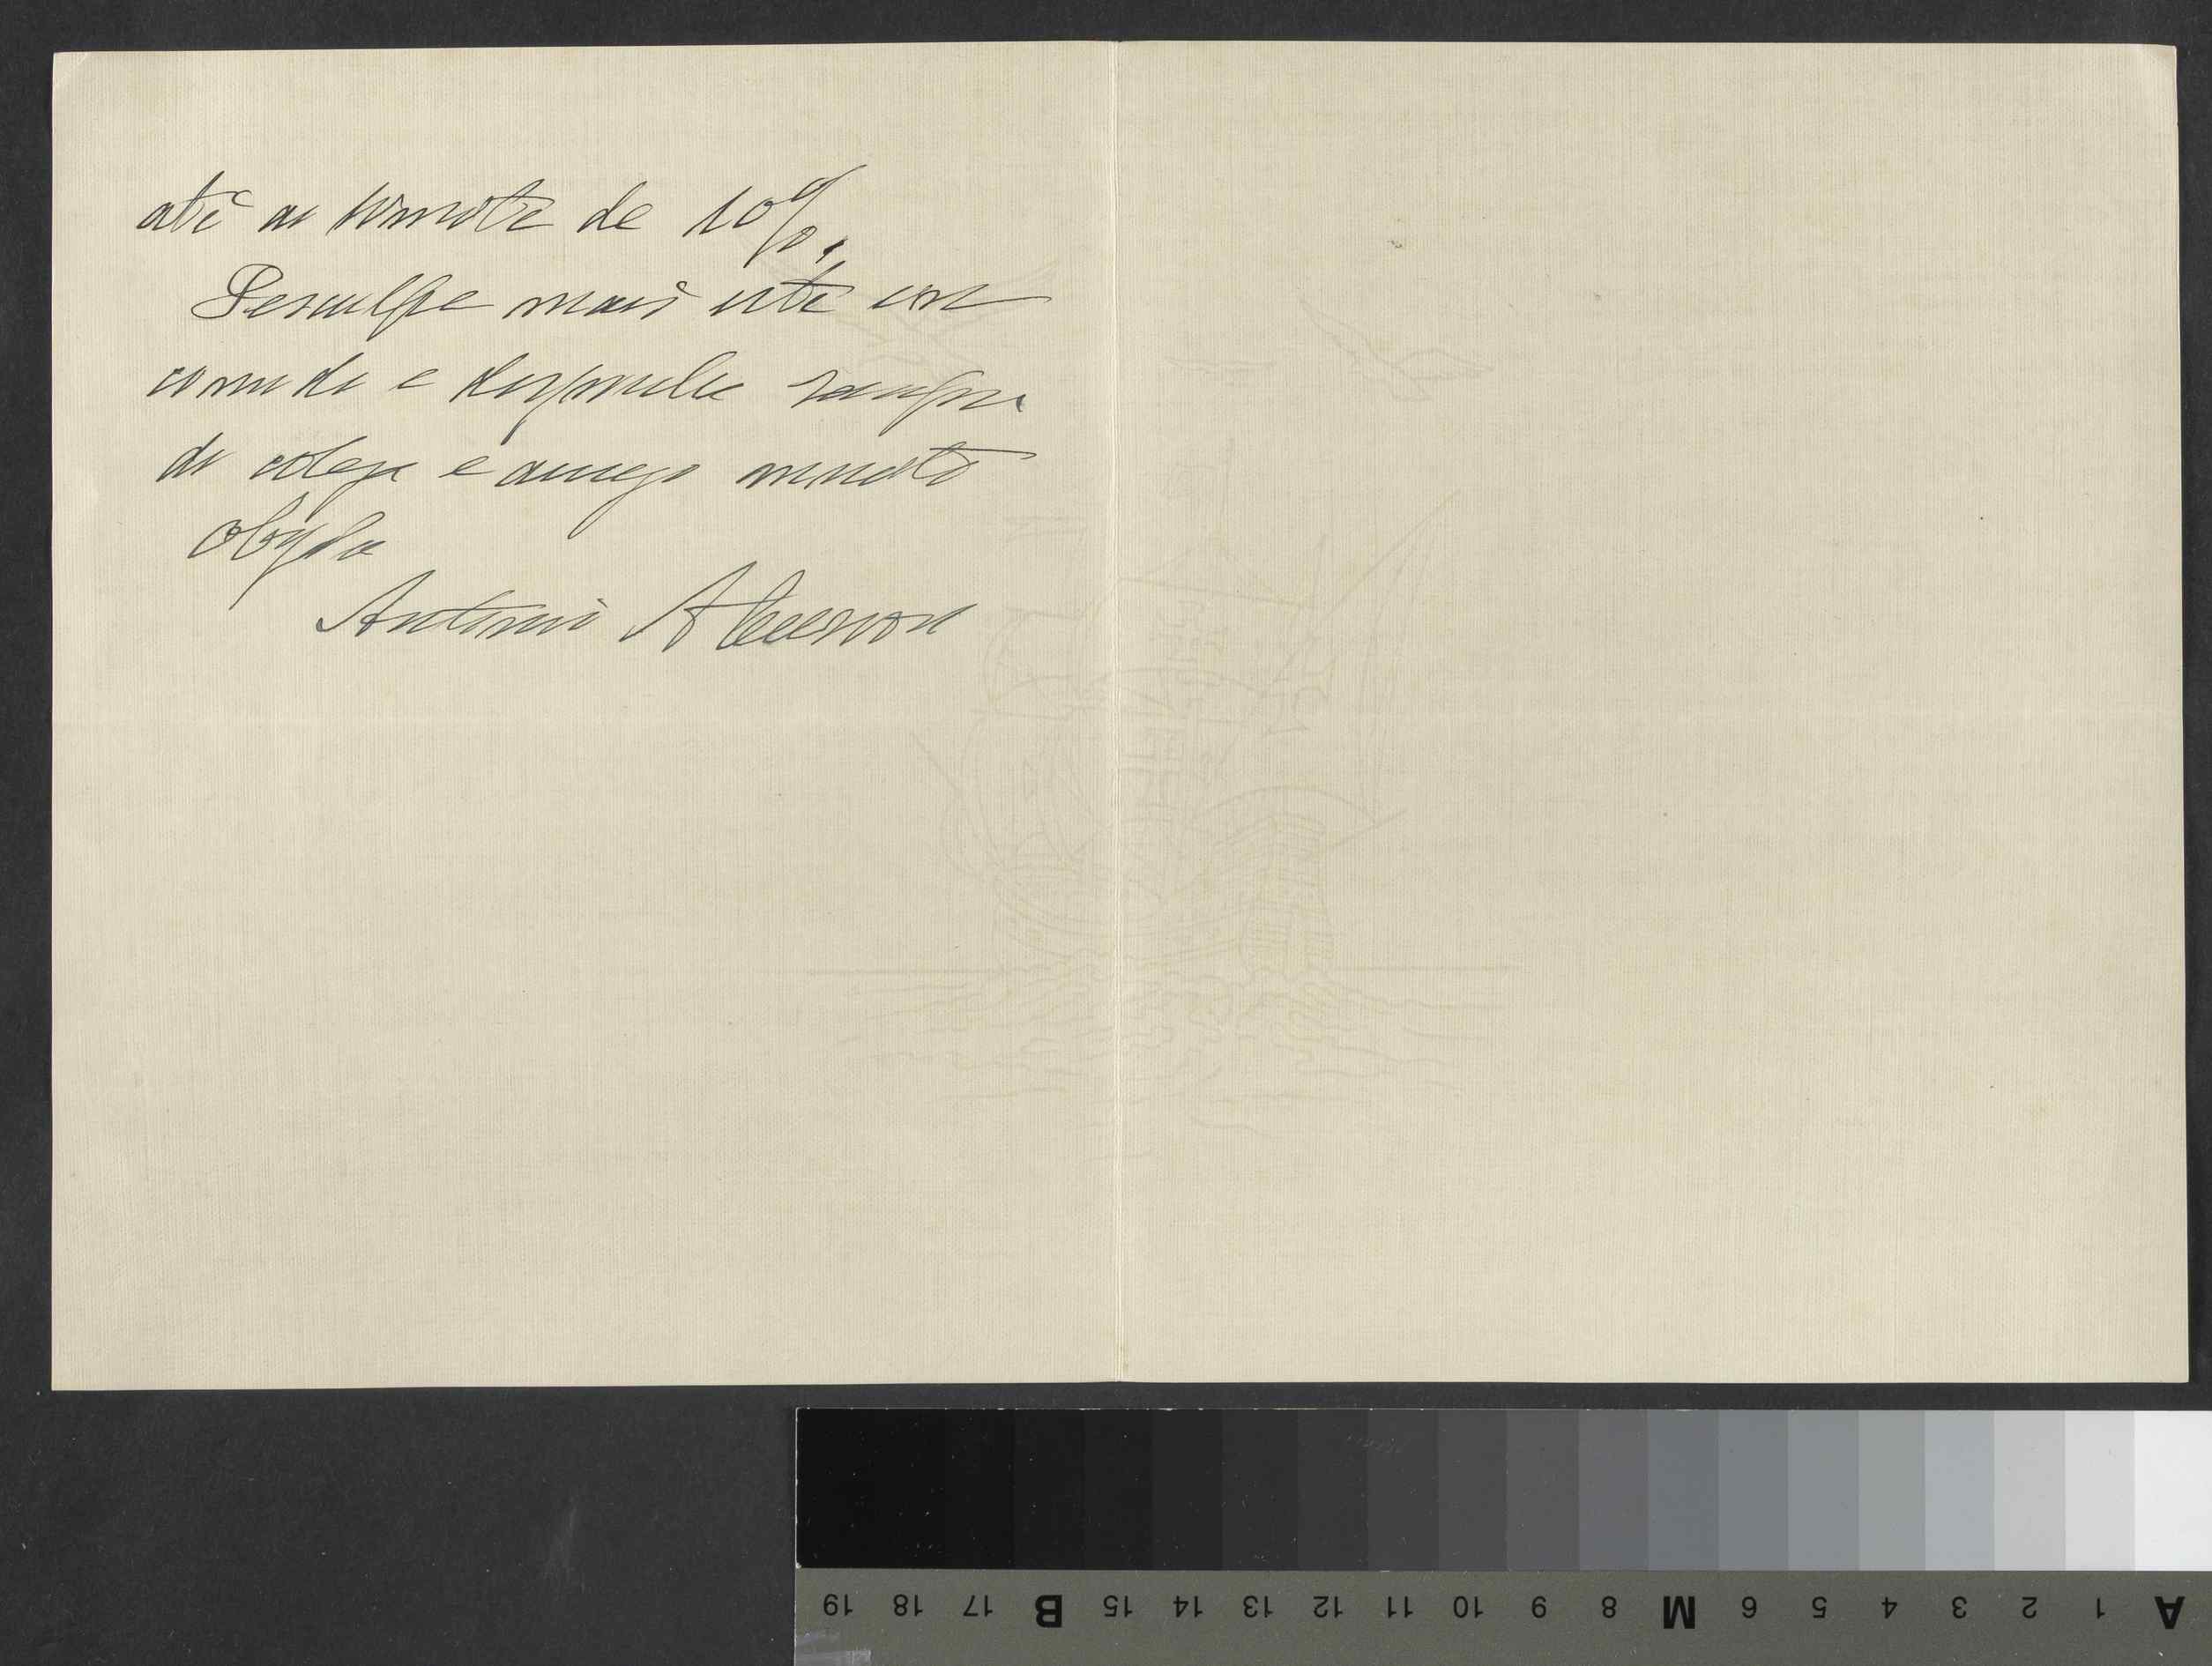 até ao limite de 10%.
Desculpe mais este in
comodo e disponha sempre
do colega e amigo muito
obgdo
Antonio
19 18 17 B 15 14 13 12 11 10 9 8 M 6 5 4 3 2 1 A